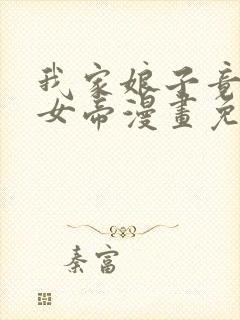 我家娘子竟
女帝漫畫免
秦富